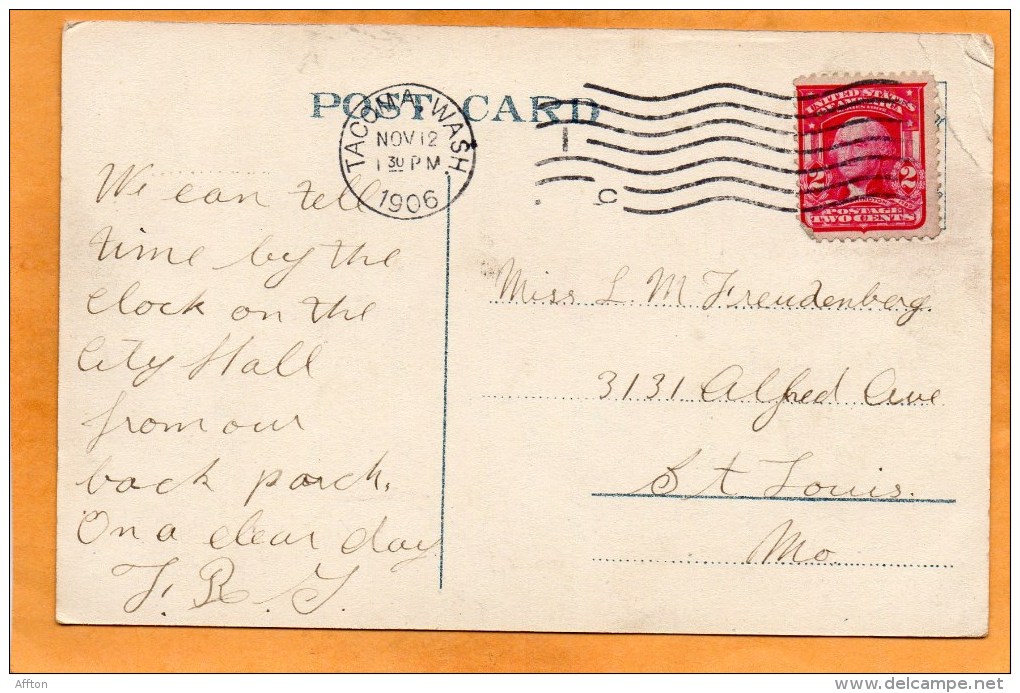 POST CARD
TACOMA, WASH.
NOV 12
1 30 PM
1906
1
C
UNITED STATES
OF AMERICA
2 2
POSTAGE
TWO CENTS
We can tell
time by the
clock on the
City Hall
from our
back porch.
On a clear day
Miss L. M Freudenberg.
3131 Alfred Ave
St Louis.
Mo.
Affton
delcampe.net